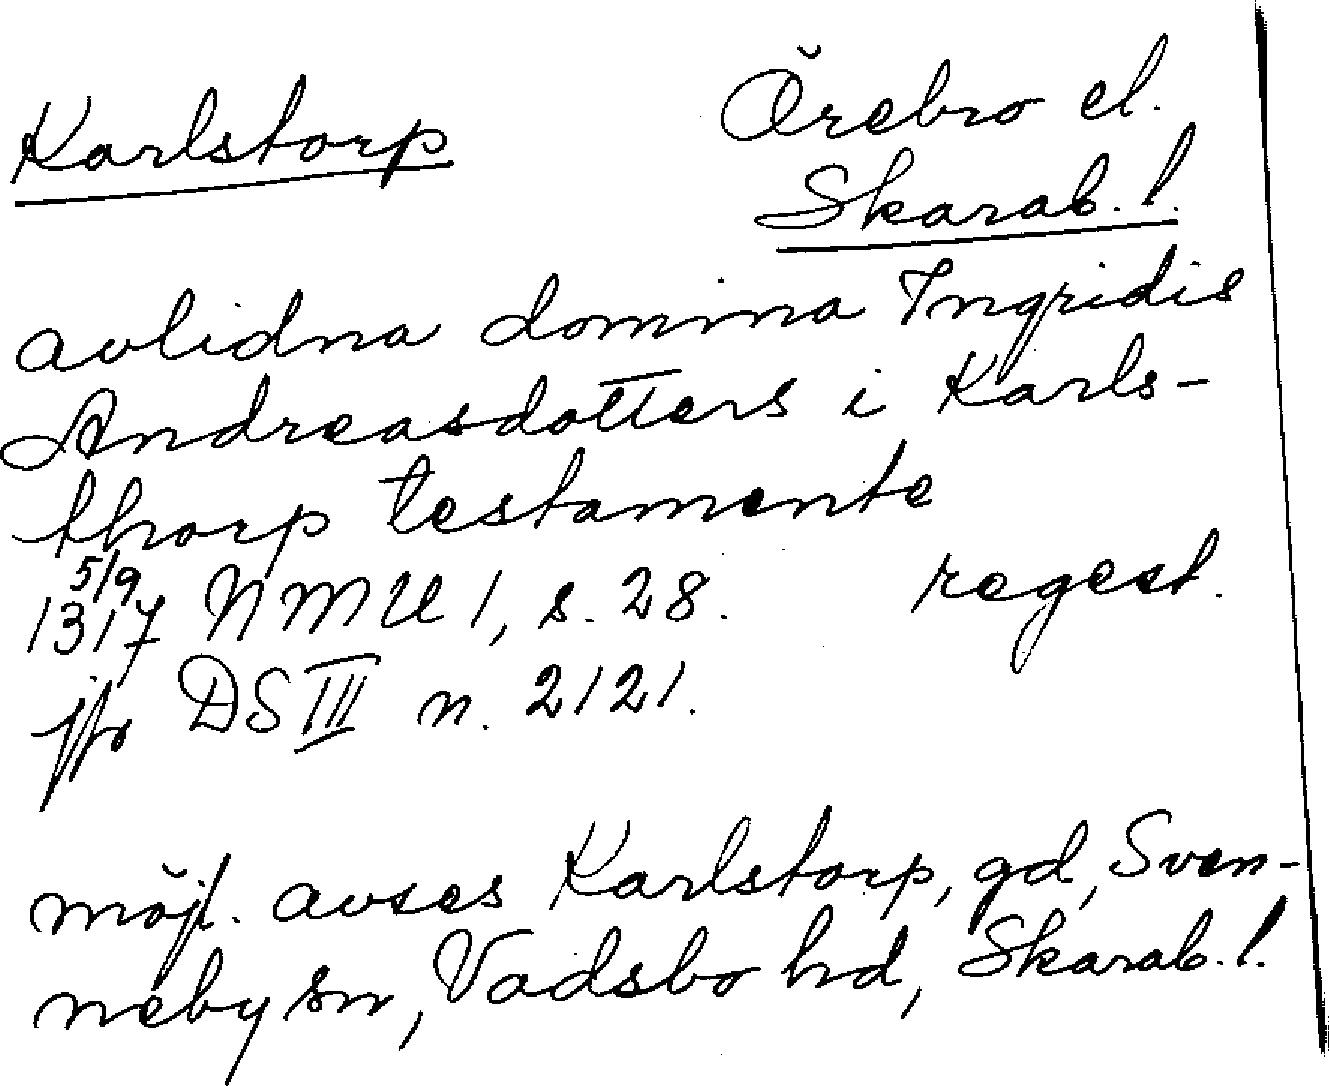 Karlstorp
Örebro el.
Skarab. l.
avlidna domina Ingridis
Andreasdotters i Karls-
thorp testamente
5/9
1317 NMU 1, s. 28. regest.
jfr DS III n. 2121.
möjl. avses Karlstorp, gd, Sven-
neby sn, Vadsbo hd, Skarab. l.